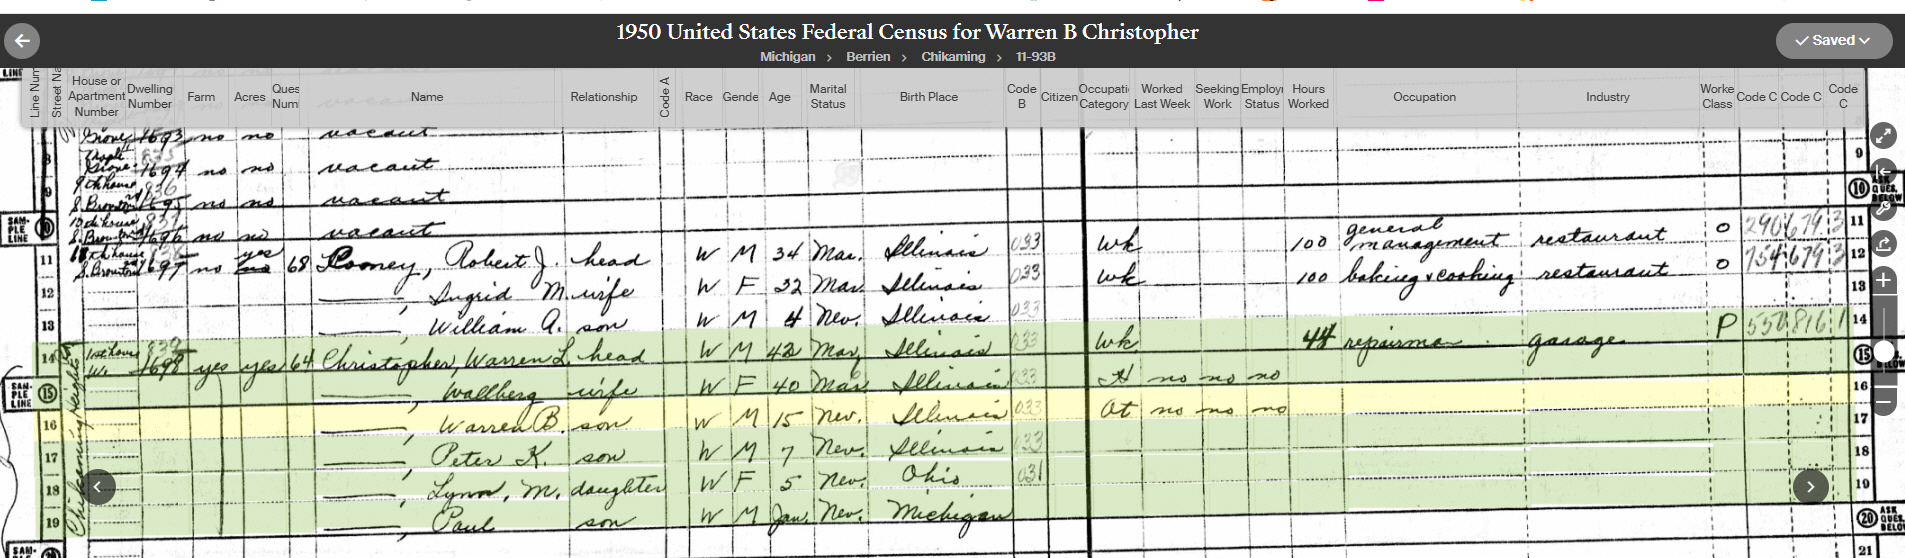 1950 United States Federal Census for Warren B Christopher
Saved
Michigan > Berrien > Chikaming > 11-93B
LINE
Line Num Street Na House or Apartment Number Dwelling Number Farm Acres Ques Num Name Relationship Code A Race Gende Age Marital Status Birth Place Code B Citizen Occupati Category Worked Last Week Seeking Work Employ Status Hours Worked Occupation Industry Worke Class Code C Code C Code C
Grove 1693 no no vacant
8 Grove 1694 no no vacant 9
9 9th house 836 S. 1695 no no vacant 10 ASK QUES. BELOW
SAMPLE LINE 10 10th house 837 S. 1696 no no vacant 11
11 11th house S. 1697 no yes no 68 Rooney, Robert J. head W M 34 Mar. Illinois 033 wk 100 general management restaurant O 290 679 3 12
12 Ingrid M. wife W F 32 Mar. Illinois 033 wk 100 baking & cooking restaurant O 754 679 3 13
13 William A. son W M 4 Nev. Illinois 033 14
14 Chikaming Heights 1st house 839 1698 yes yes 64 Christopher, Warren L. head W M 42 Mar. Illinois 033 wk 44 repairman garage P 550 816 1 15
SAMPLE LINE 15 Wallberg wife W F 40 Mar. Illinois 033 H no no no 16
16 Warren B. son W M 15 Nev. Illinois 033 Ot no no no 17
17 Peter K. son W M 7 Nev. Illinois 033 18
18 Lynn, M. daughter W F 5 Nev. Ohio 031 19
19 Paul son W M Jan. Nev. Michigan 20 ASK QUES. BELOW
SAM- 20 21